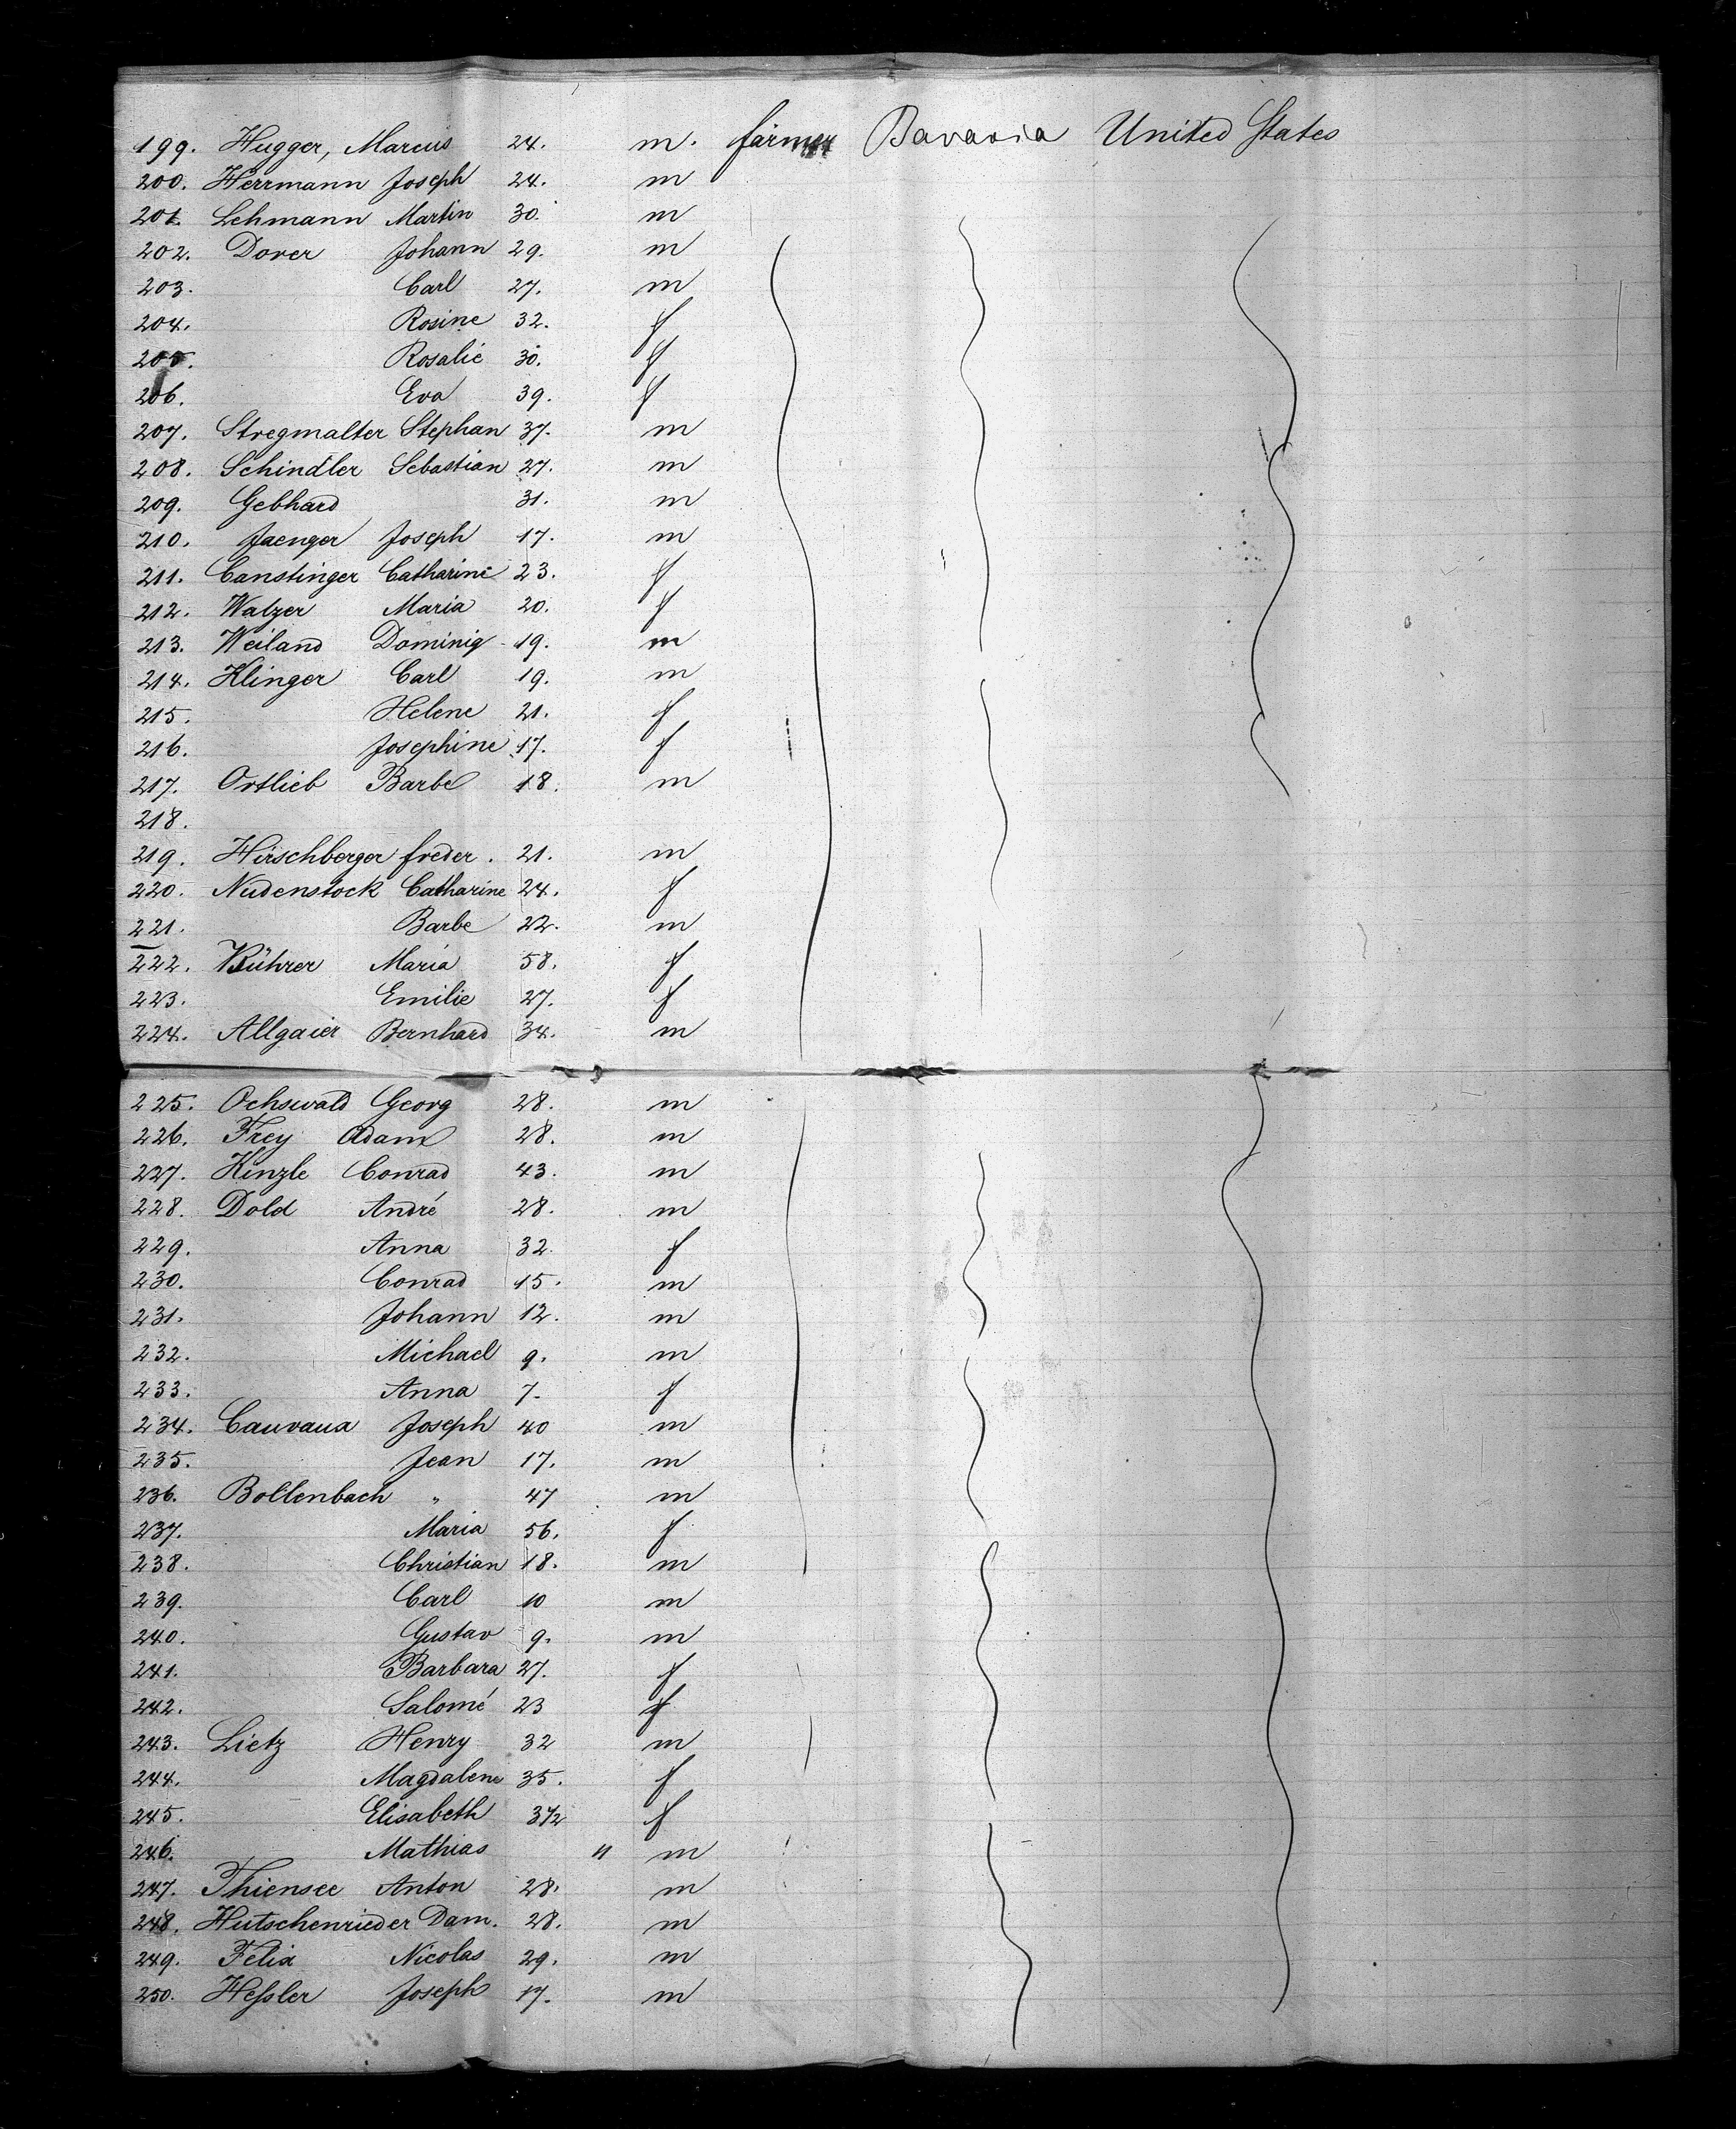 199. Hugger, Marcus 24. m. farmer Bavaria United States
200. Herrmann Joseph 24. m
201. Lehmann Martin 30. m
202. Dorer Johann 29. m
203. Carl 27. m
204. Rosine 32. f
205. Rosalie 30. f
206. Eva 39. f
207. Stregmalter Stephan 37. m
208. Schindler Sebastian 27. m
209. Gebhard 31. m
210. Jaenger Joseph 17. m
211. Canstinger Catharine 23. f
212. Walzer Maria 20. f
213. Weiland Dominig 19. m
214. Klinger Carl 19. m
215. Helene 21. f
216. Josephine 17. f
217. Ortlieb Barbe 18. m
218.
219. Hirschberger freder. 21. m
220. Nudenstock Catharine 24. f
221. Barbe 22. m
222. Bührer Maria 58. f
223. Emilie 27. f
224. Allgaier Bernhard 34. m
225. Ochswald Georg 28. m
226. Frey Adam 28. m
227. Kinzle Conrad 43. m
228. Dold André 28. m
229. Anna 32. f
230. Conrad 15. m
231. Johann 12. m
232. Michael 9. m
233. Anna 7. f
234. Cauvaux Joseph 40 m
235. Jean 17. m
236. Bollenbach " 47 m
237. Maria 56. f
238. Christian 18. m
239. Carl 10 m
240. Gustav 9. m
241. Barbara 27. f
242. Salomé 23 f
243. Lietz Henry 32 m
244. Magdalene 35. f
245. Elisabeth 3 1/2 f
246. Mathias " m
247. Thiensee Anton 28. m
248. Hutschenrieder Dam. 28. m
249. Felix Nicolas 29. m
250. Heſsler Joseph 17. m